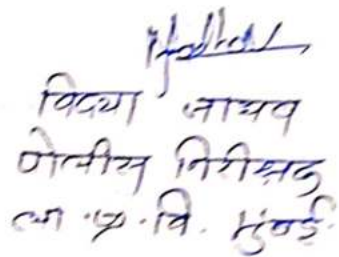 विद्या जाधव
पोलीस निरीक्षक
ला.प्र.वि. मुंबई.